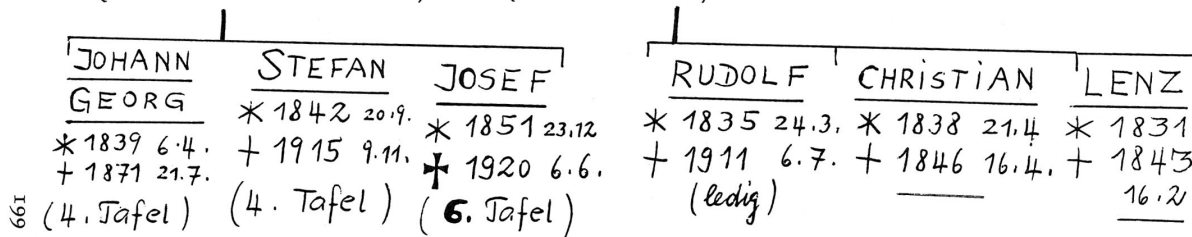 JOHANN
GEORG
* 1839 6.4.
+ 1871 21.7.
(4. Tafel)
STEFAN
* 1842 20.9.
+ 1915 9.11.
(4. Tafel)
JOSEF
* 1851 23.12
✝ 1920 6.6.
(6. Tafel)
RUDOLF
* 1835 24.3.
+ 1911 6.7.
(ledig)
CHRISTIAN
* 1838 21.4
+ 1846 16.4.
LENZ
* 1831
+ 1843
16.2
199